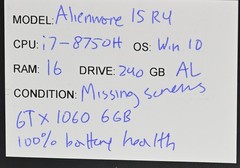 MODEL: Alienware 15 R4
CPU: i7-8750H OS: Win 10
RAM: 16 DRIVE: 240 GB AL
CONDITION: Missing screws
GTX 1060 6GB
100% battery health